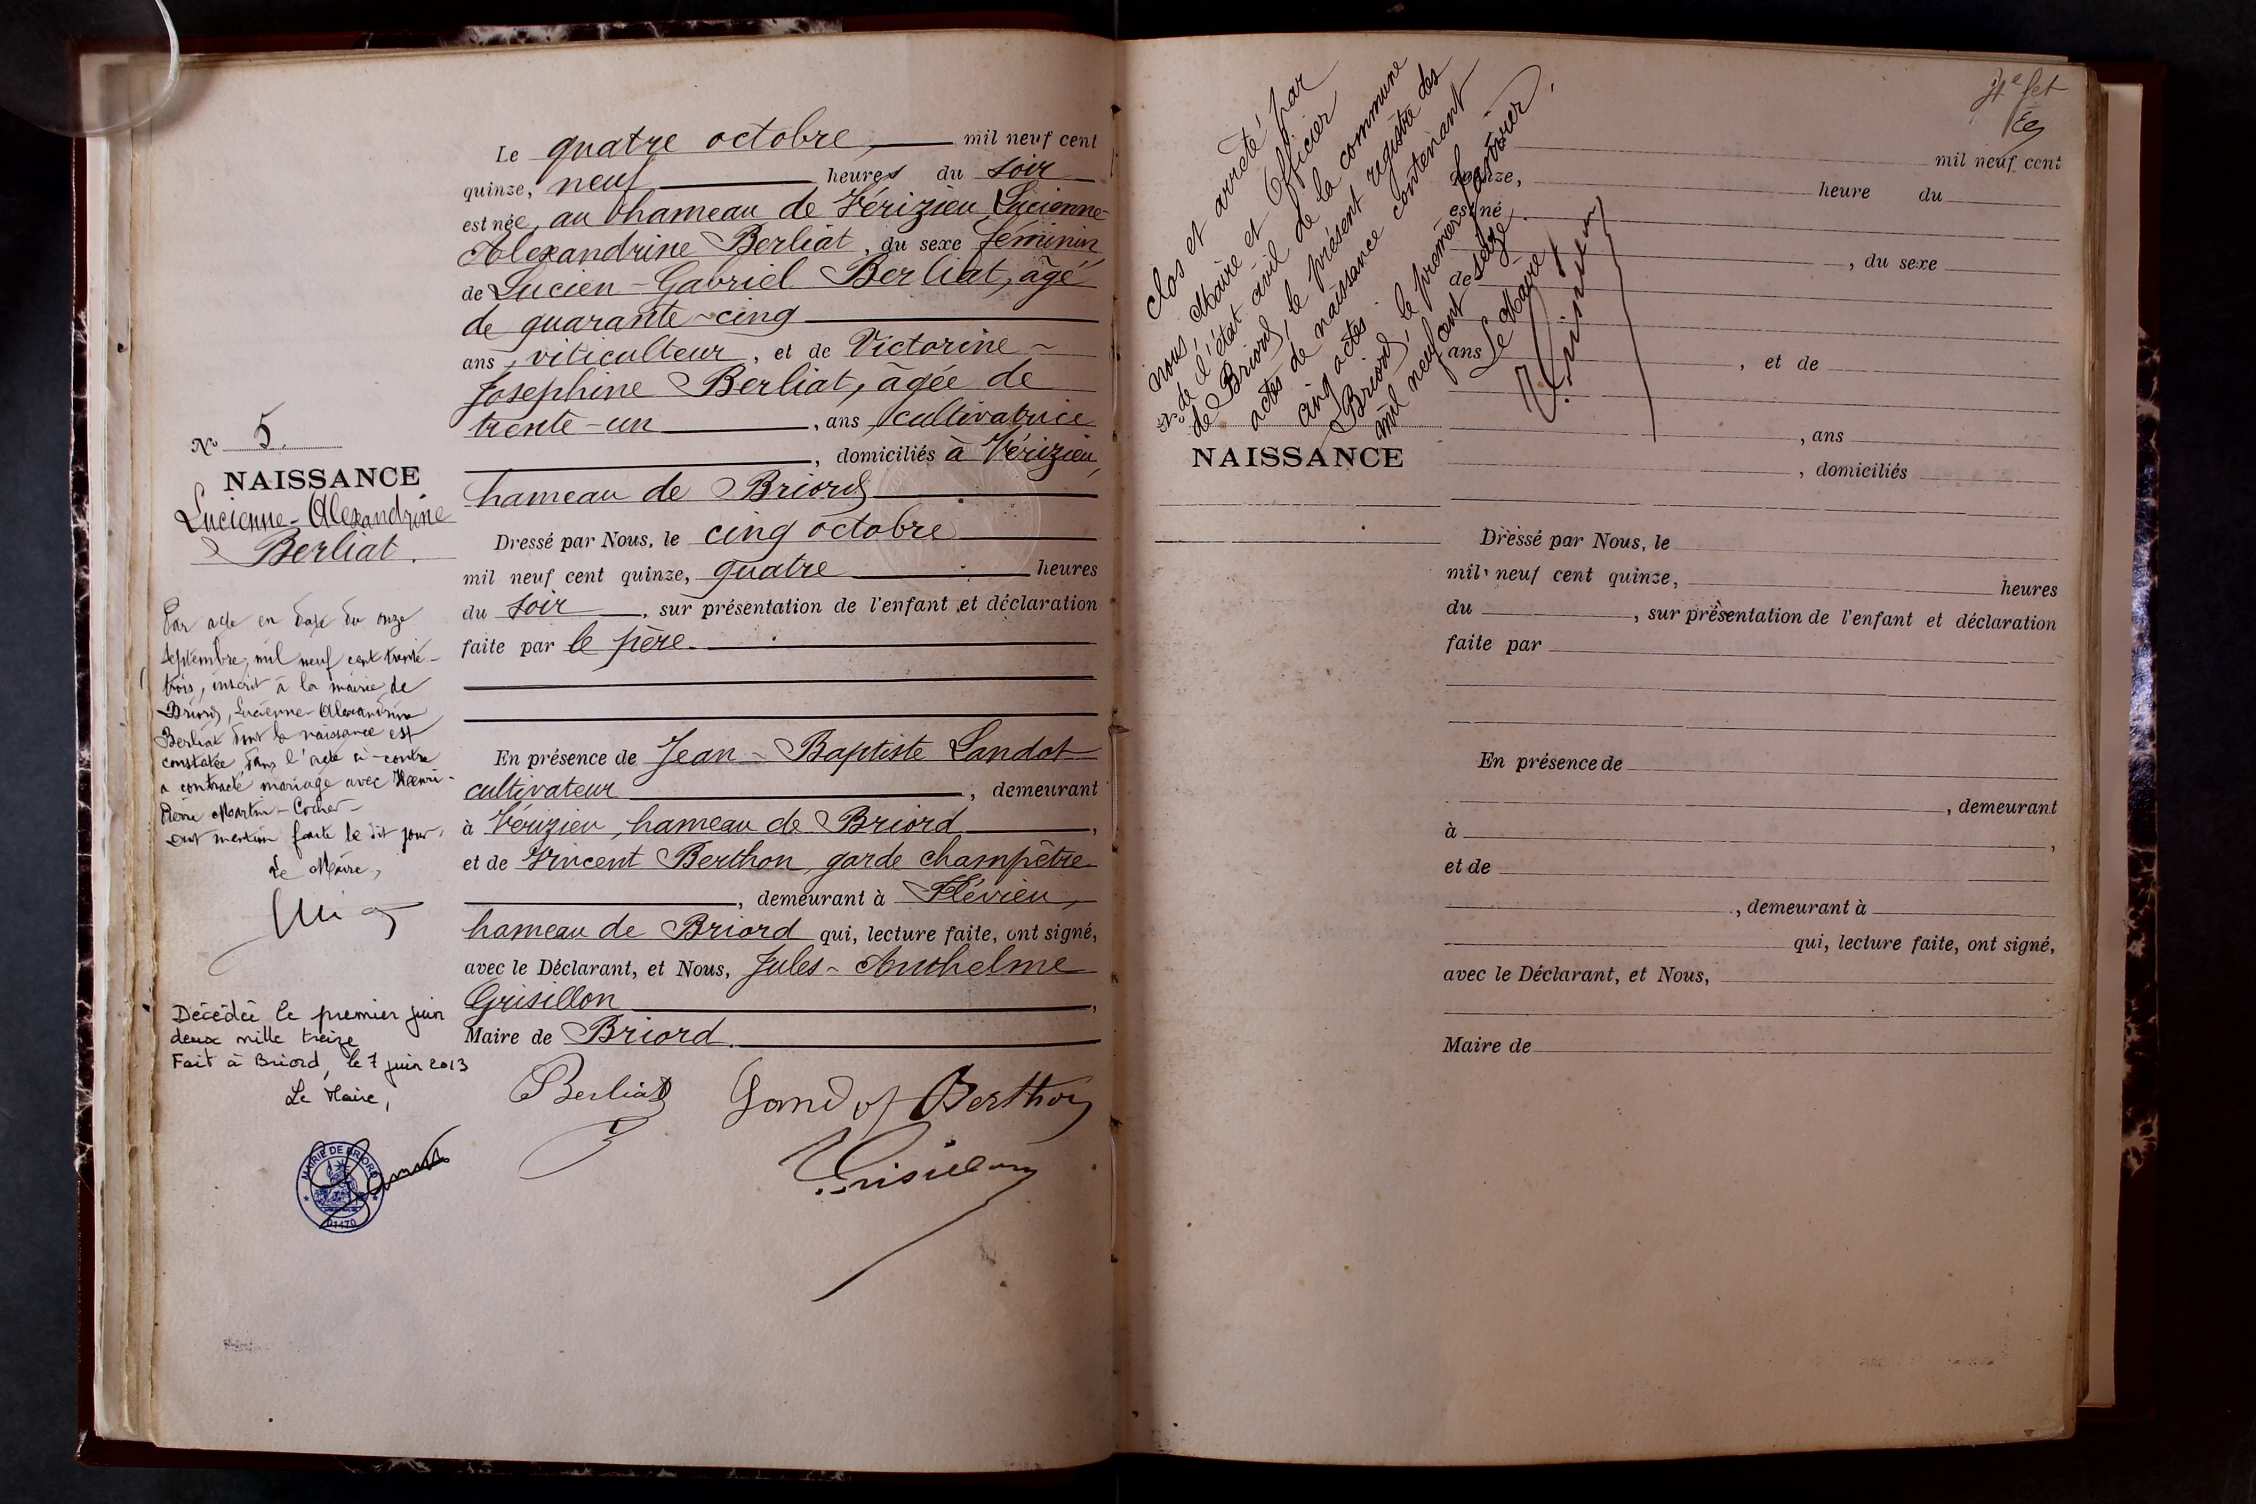 N° 5.
NAISSANCE
Lucienne-Alexandrine
Berliat.
Par acte en date du onze
septembre, mil neuf cent trente-
trois, inscrit à la mairie de
Briord, Lucienne-Alexandrine
Berliat dont la naissance est
constatée dans l'acte ci-contre
a contracté mariage avec Henri-
Pierre Martin-Cocher-
Dont mention faite le dit jour.
Le Maire,
Décédée le premier juin
deux mille treize
Fait à Briord, le 7 juin 2013
Le Maire,
MAIRIE DE BRIORD
01470
Le quatre octobre, mil neuf cent
quinze, neuf heures du soir
est née, au hameau de Vérizieu Lucienne-
Alexandrine Berliat, du sexe féminin,
de Lucien-Gabriel Berliat, âgé
de quarante-cinq
ans, viticulteur, et de Victorine-
Josephine Berliat, âgée de
trente-un, ans, cultivatrice
, domiciliés à Vérizieu,
hameau de Briord
Dressé par Nous, le cinq octobre
mil neuf cent quinze, quatre heures
du soir, sur présentation de l'enfant et déclaration
faite par le père.
En présence de Jean-Baptiste Landot
cultivateur, demeurant
à Vérizieu, hameau de Briord,
et de Vincent Berthon, garde champêtre
, demeurant à Flévieu,
hameau de Briord qui, lecture faite, ont signé,
avec le Déclarant, et Nous, Jules-Anthelme
Grisillon,
Maire de Briord.
Berliat Landot Berthon
Grisillon
Clos et arrêté par
nous, Maire et Officier
de l'état civil de la commune
de Briord, le présent registre des
actes de naissance contenant
cinq actes.
Briord, le premier Janvier
mil neuf cent seize.
Le Maire,
Grisillon
N°
NAISSANCE
mil neuf cent
quinze, heure du
est né
, du sexe
de
ans, et de
, ans
, domiciliés
Dressé par Nous, le
mil neuf cent quinze, heures
du, sur présentation de l'enfant et déclaration
faite par
En présence de
, demeurant
à,
et de
, demeurant à
qui, lecture faite, ont signé,
avec le Déclarant, et Nous,
Maire de